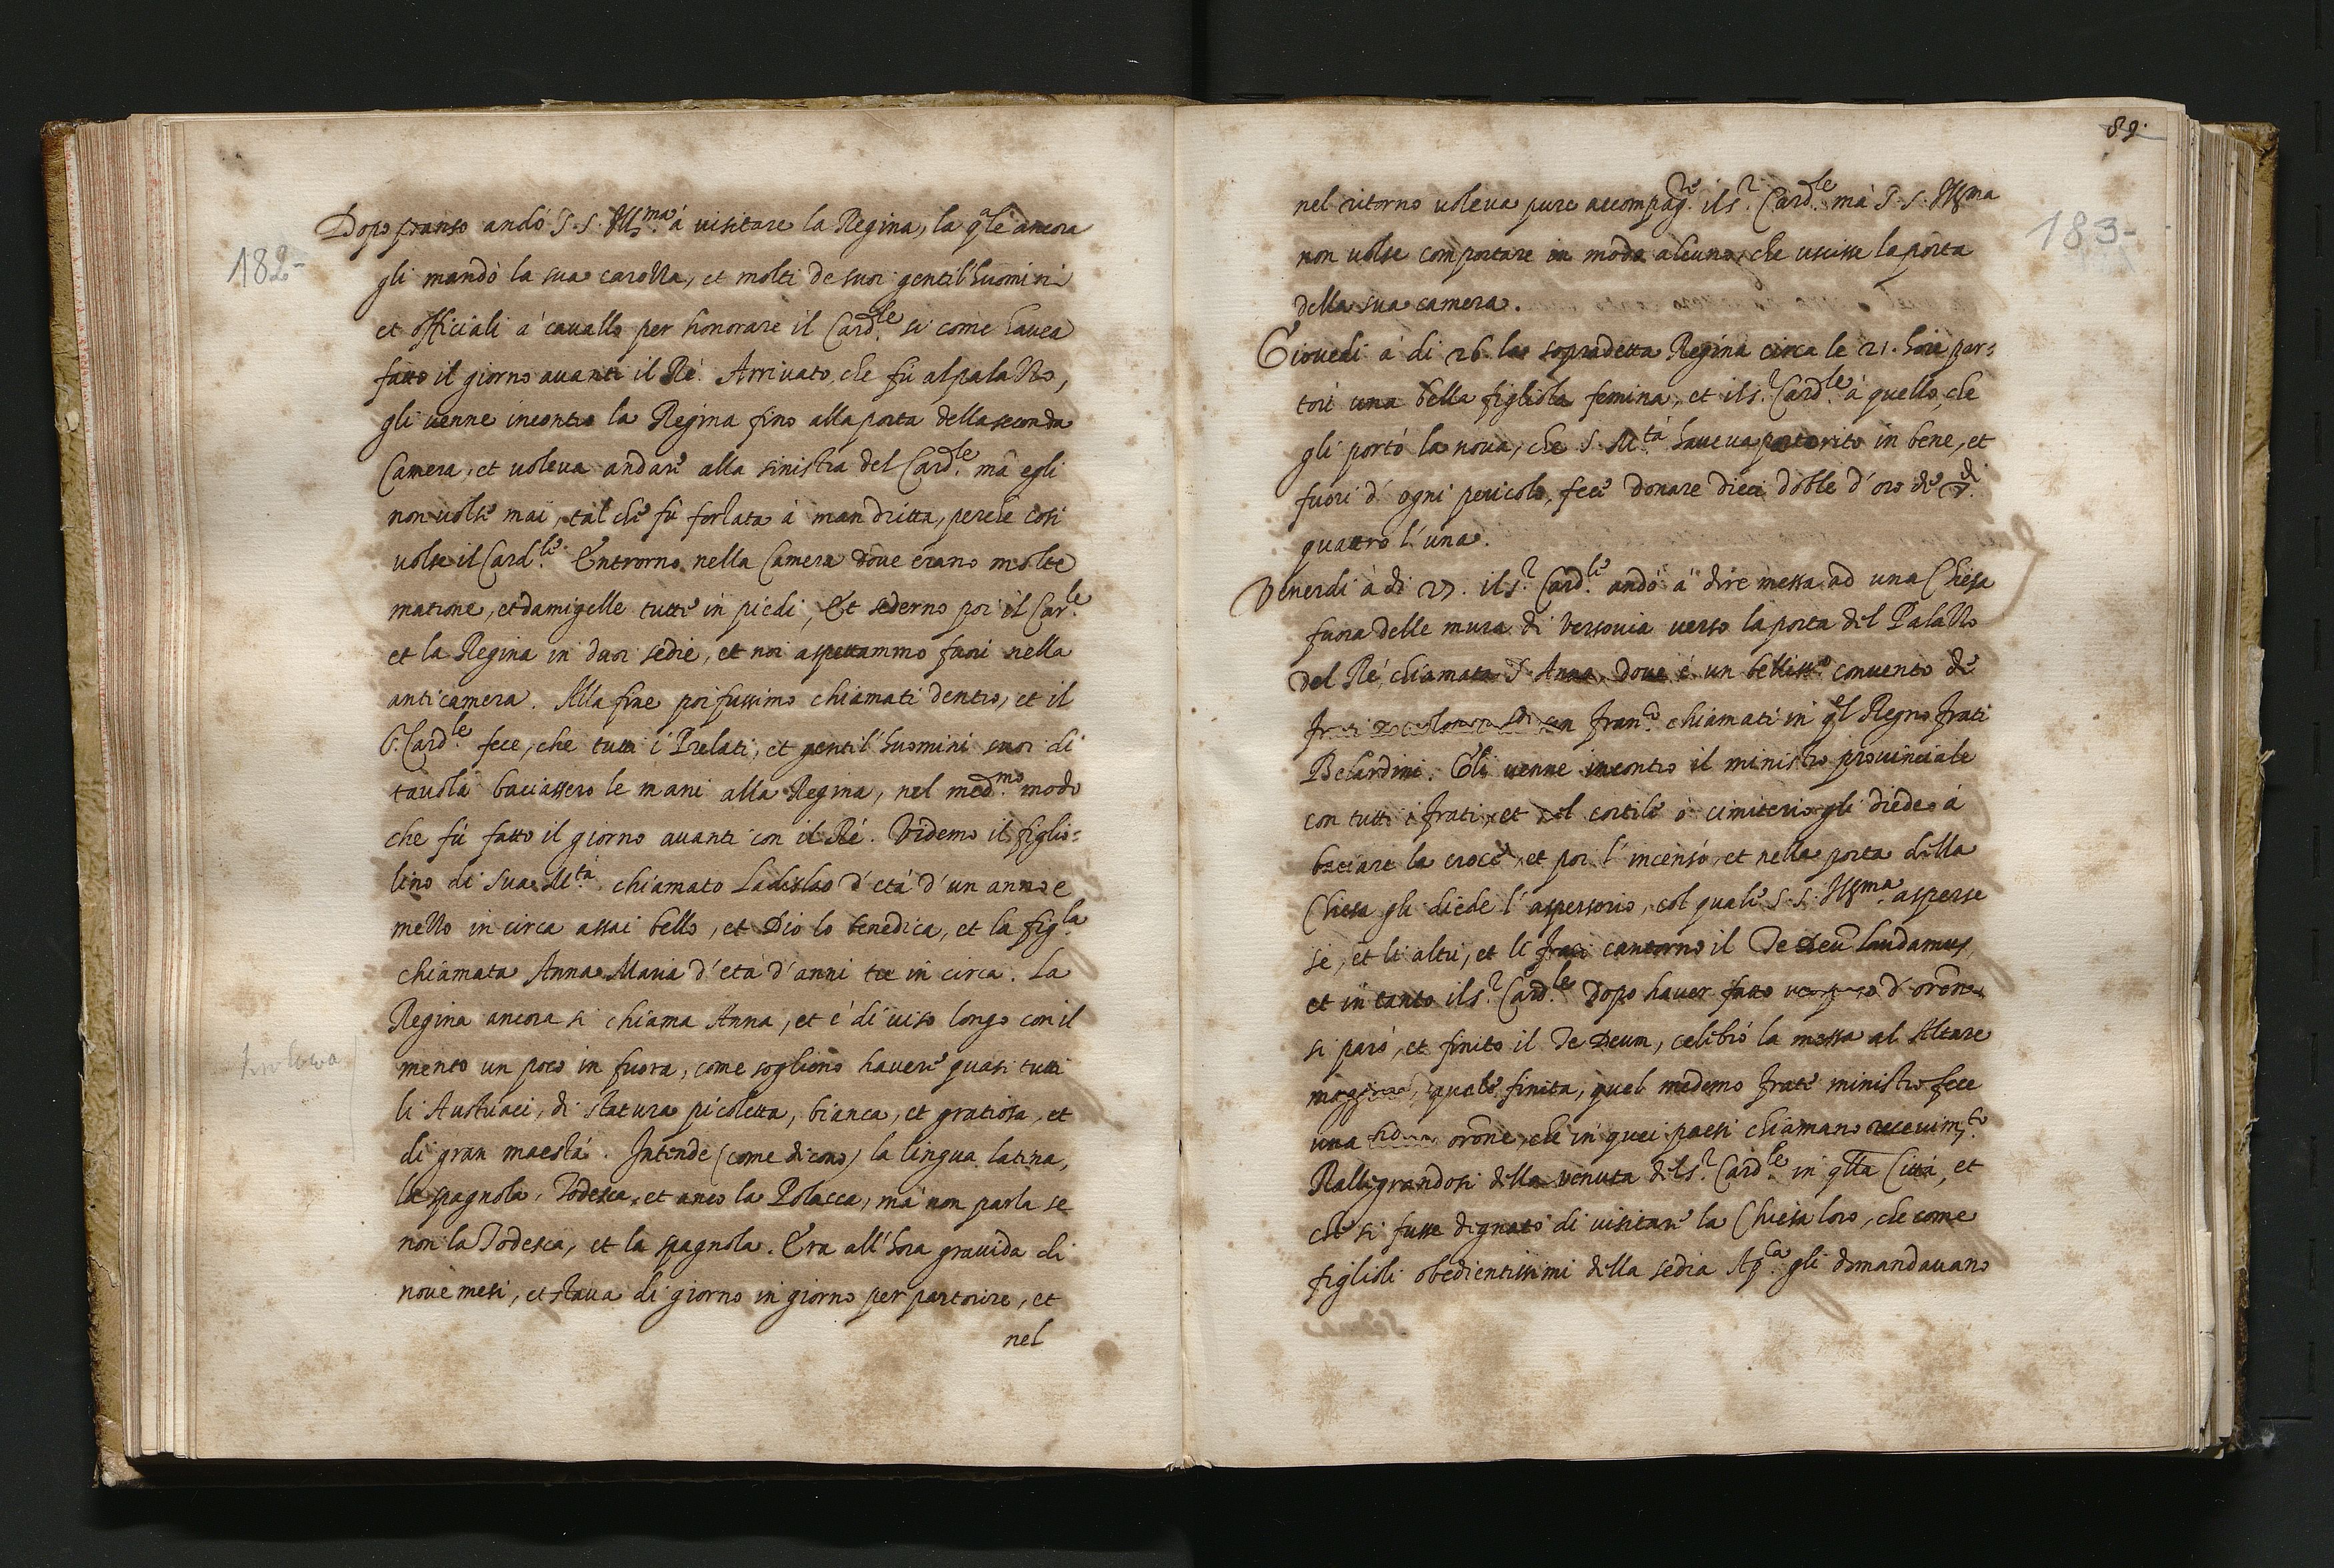 182-
Dopo pranso andò S. S. Ill.ma à visitare la Regina, la q.le ancora
gli mandò la sua carozza, et molti de suoi gentil'huomini
et officiali à cavallo per honorare il Card.le si come havea
fatto il giorno avanti il Rè. Arrivato, che fù al palazzo,
gli venne incontro la Regina fino alla porta della seconda
Camera, et voleva andare alla sinistra del Card.le mà egli
non volse mai, tal che fù forzata à man dritta, perche cosi
volse il Card.le Entrorno nella Camera dove erano molte
matrone, et damigelle tutte in piedi, Et sederno poi il Car.le
et la Regina in duoi sedie, et noi aspettammo fuori nella
anticamera. Alla fine poi fussimo chiamati dentro, et il
S. Card.le fece, che tutti i Prelati, et gentil'huomini suoi di
tavola baciassero le mani alla Regina, nel med.mo modo
che fù fatto il giorno avanti con il Rè. Videmo il figlio=
lino di sua M.tà chiamato Ladislao d'età d'un anno e
mezzo in circa assai bello, et Dio lo benedica, et la fig.la
chiamata Anna Maria d'età d'anni tre in circa. La
Regina ancora si chiama Anna, et è di viso longo con il
mento un poco in fuora, come sogliono havere quasi tutti
li Austriaci, di statura picoletta, bianca, et gratiosa, et
di gran maestà. Intende (come dicono) la lingua latina,
la spagnola, Todesca, et anco la Polacca, mà non parla se
non la Todesca, et la spagnola. Era all'hora gravida di
nove mesi, et stava di giorno in giorno per partorire, et
nel
89.
183-
nel ritorno voleva pure accompag.re il s.r Card.le mà S. S. Ill.ma
non volse comportare in modo alcuno, che uscisse la porta
della sua camera.
Giovedi à di 26. la sopradetta Regina circa le 21. hore par=
torì una bella figliola femina, et il s.r Card.le à quello, che
gli portò la nova, che S. M.tà haveva partorito in bene, et
fuori d'ogni pericolo, fece donare dieci doble d'oro de
quattro l'una.
Venerdi à di 27. il s.r Card.le andò à dire messa ad una Chiesa
fuora delle mura di Versovia verso la porta del Palazzo
del Rè, chiamata S. Anna, dove è un belliss.o convento de
Frati Zoccolanti di san Fran.co chiamati in q.el Regno frati
Belardini. Gli venne incontro il ministro provinciale
con tutti i frati, et nel cortile ò cimiterio gli diede à
baciare la croce, et poi l'incensò, et nella porta della
Chiesa gli diede l'aspersorio, col quale S. S. Ill.ma asperse
se, et li altri, et li frati cantorno il Te Deũ laudamus,
et in tanto il s.r Card.le dopo haver fatto un poco d'orõne
si parò, et finito il Te Deum, celebrò la messa al Altare
maggiore, quale finita, quel medemo frate ministro fece
una orõne, che in quei paesi chiamano recevim.to
Rallegrandosi della venuta del s.r Card.le in q.lla Città, et
che si fusse dignato di visitare la Chiesa loro, che come
figlioli obedientissimi della sedia Ap.ca gli domandavano